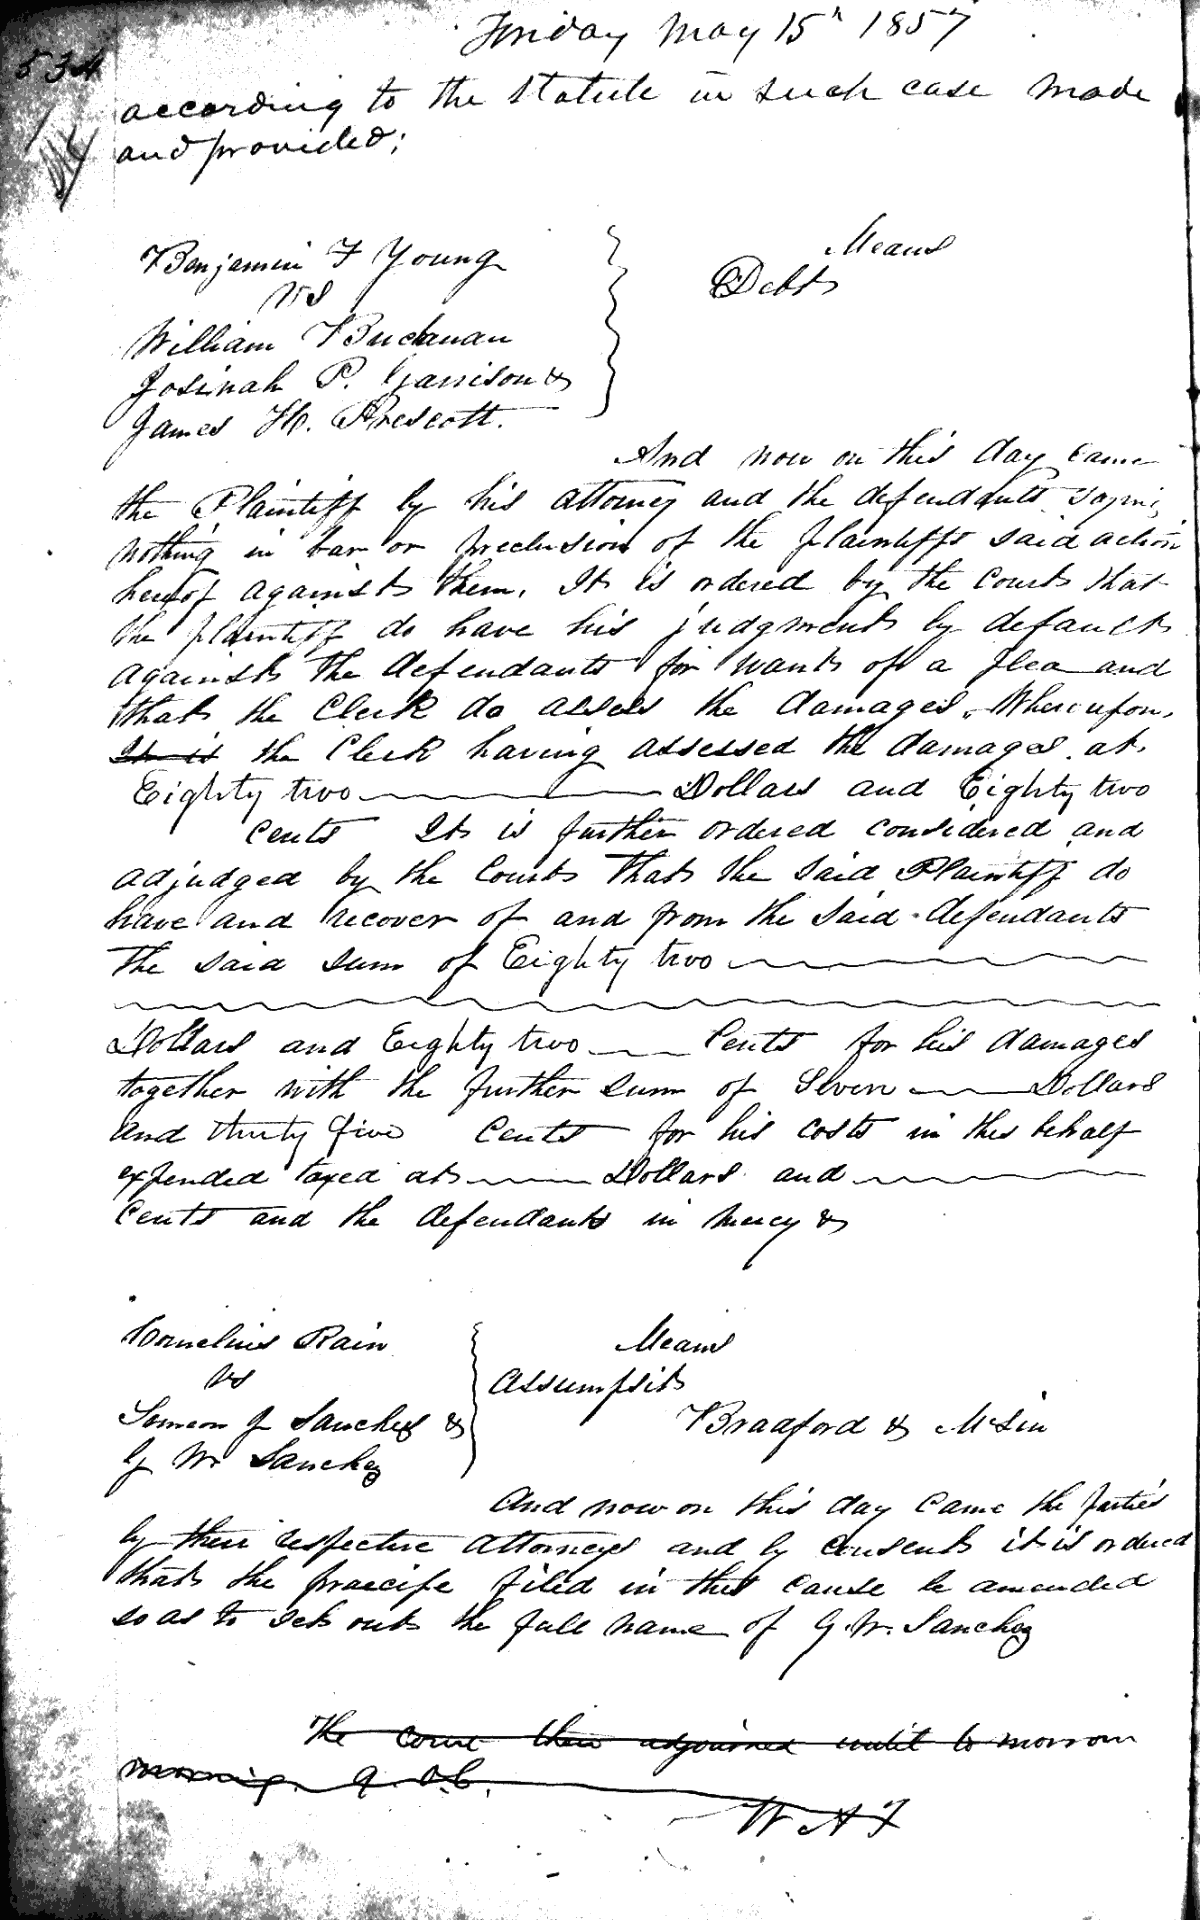 Friday May 15th 1857
534
according to the Statute in such case made
and provided;
Benjamin F Young
vs
William Buchanan
Josinah P. Garrison &
James H. Prescott.
Means
Debt
And now on this day came
the Plaintiff by his attorney and the defendants saying
nothing in bar or preclusion of the plaintiffs said action
hereof against them. It is ordered by the Court that
the plaintiff do have his judgment by default
against the defendants for want of a plea and
that the Clerk do assess the damages. Whereupon,
It is the Clerk having assessed the damages at
Eighty two Dollars and Eighty two
Cents It is further ordered considered and
adjudged by the Court that the said Plaintiff do
have and recover of and from the said defendants
the said sum of Eighty two
Dollars and Eighty two Cents for his damages
together with the further sum of Seven Dollars
and thirty five Cents for his costs in this behalf
expended taxed at Dollars and
Cents and the defendants in mercy &
Cornelius Rain
vs
Simeon J Sanchez &
G W Sanchez
Means
Assumpsit
Bradford & McLin
And now on this day Came the parties
by their respective attorneys and by consent it is ordered
that the praecipe filed in this cause be amended
so as to set out the full name of G. W. Sanchez
The court then adjourned until to morrow
morning 9. O.C.
W A F